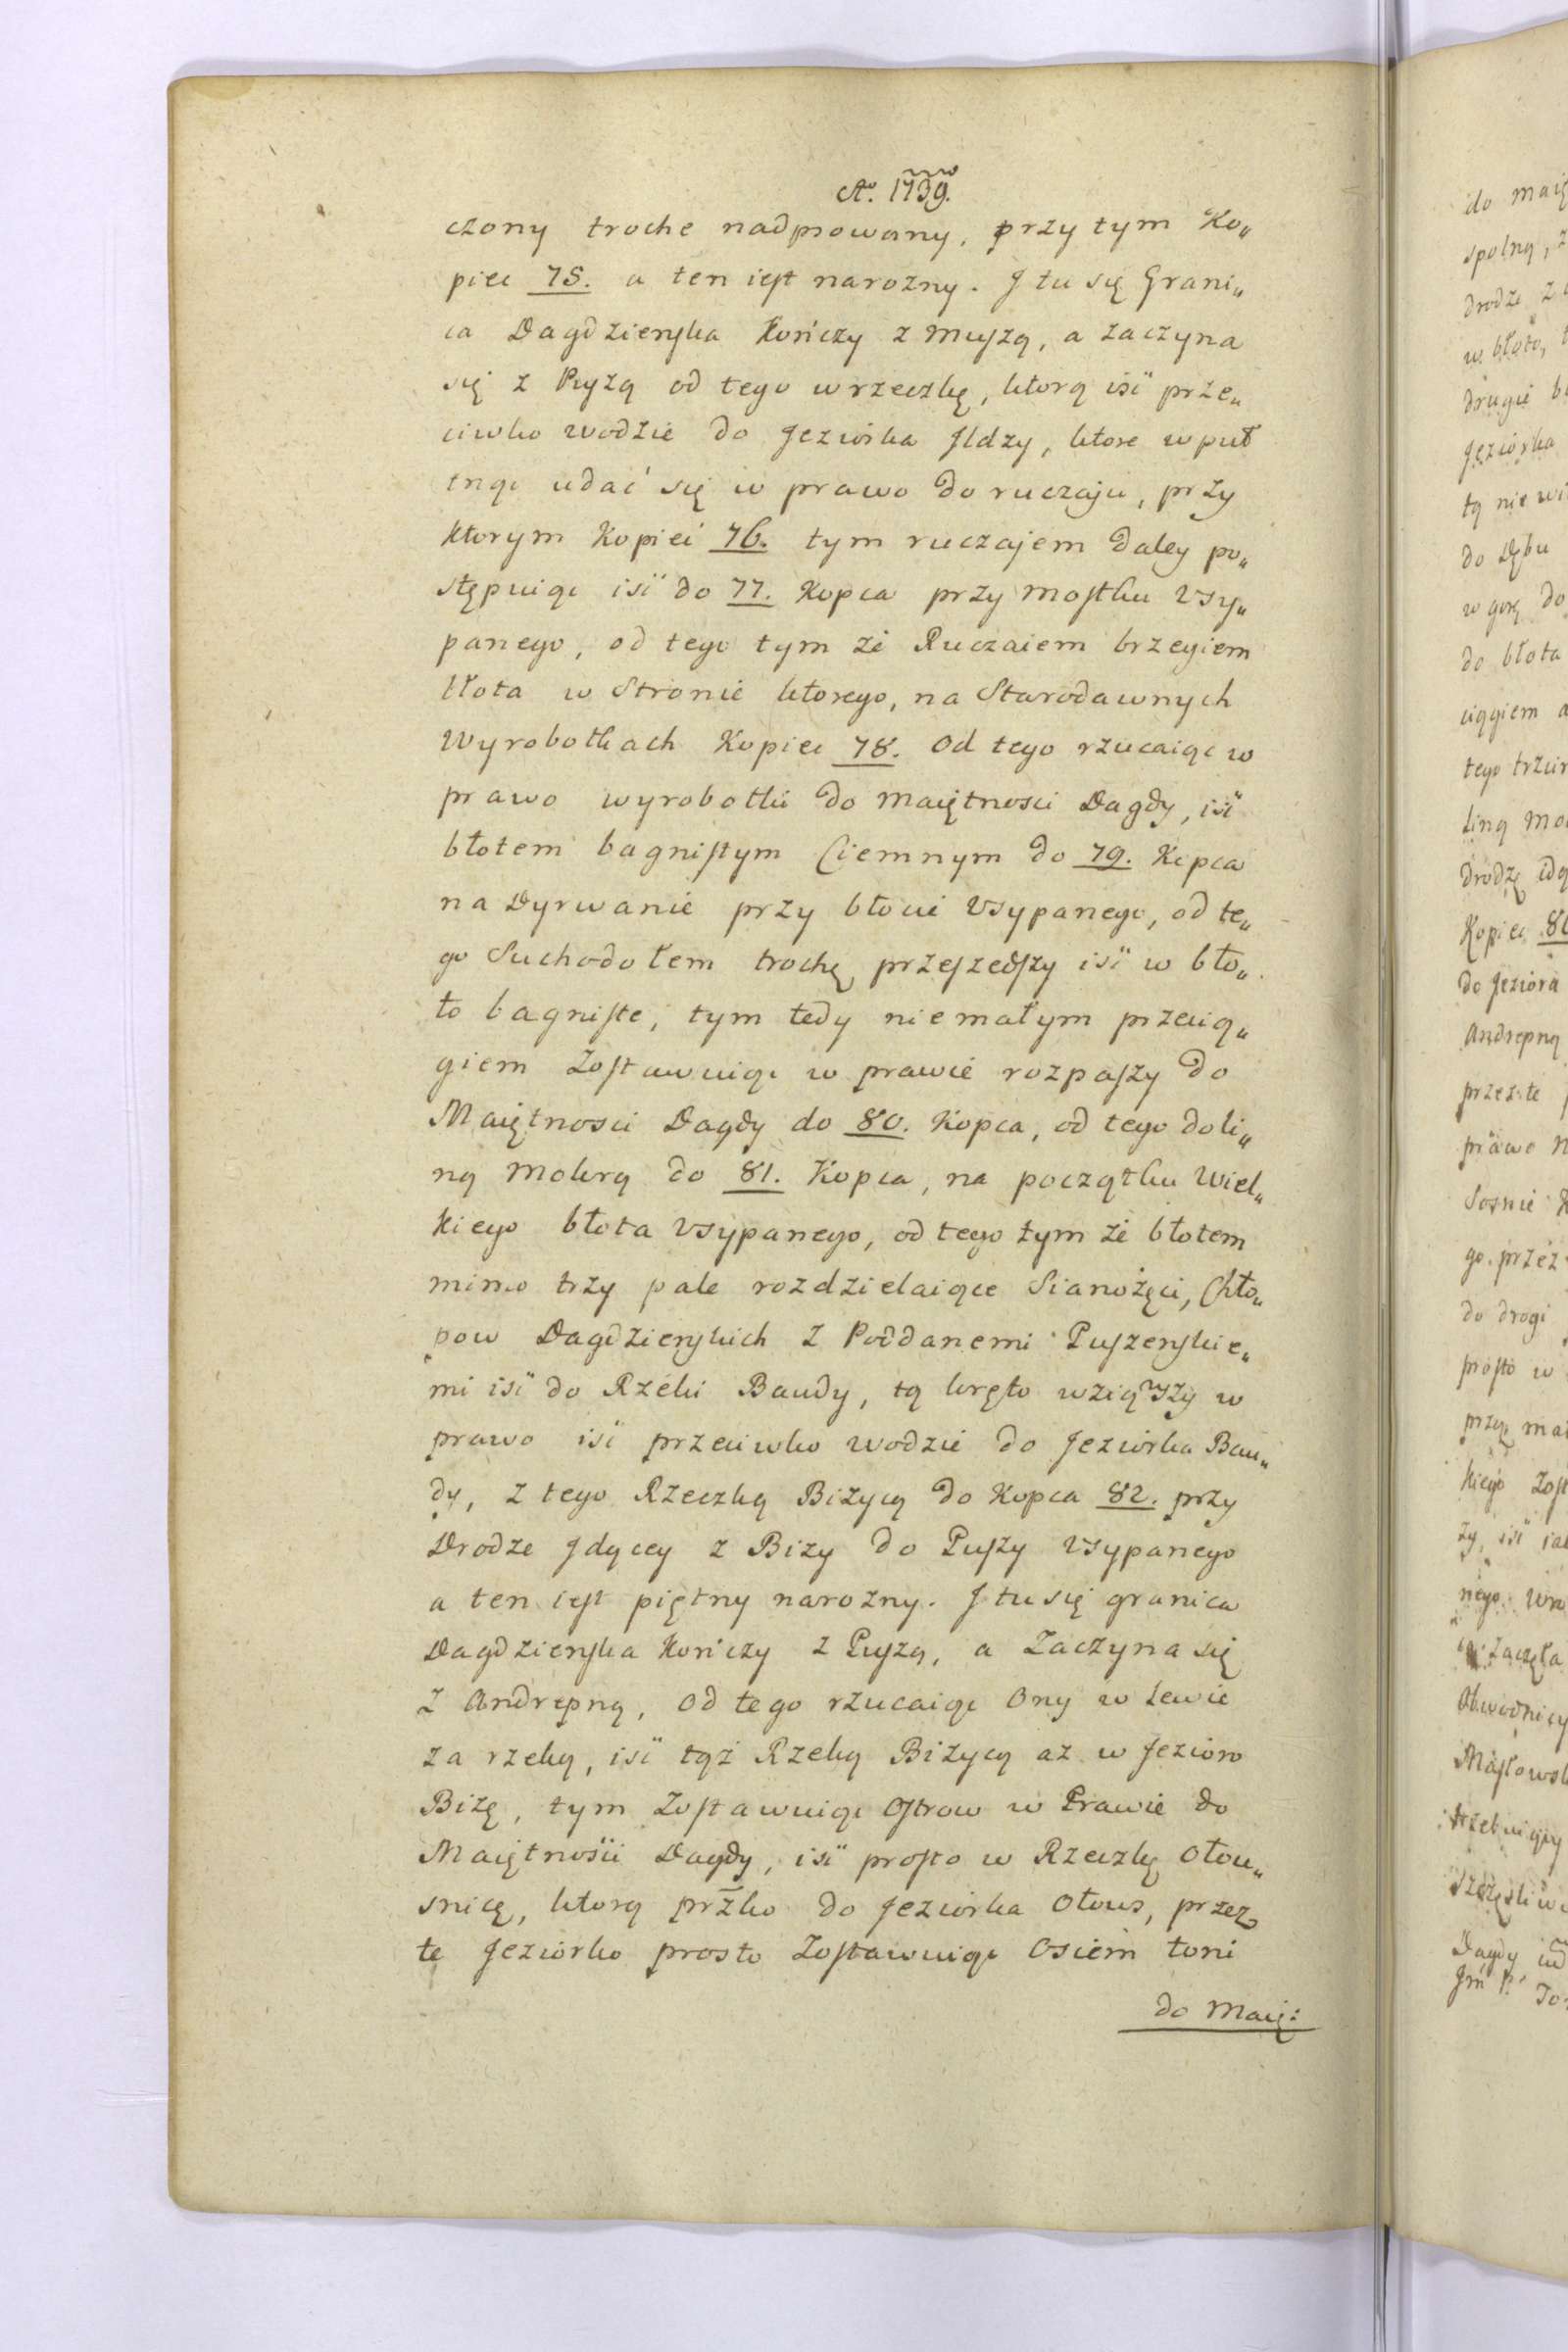 Ao. 1739.
czony troche nadpsowany, przy tym Ko„
piec 75. a ten iest narozny. J tu się Grani„
ca Dagdzienska Kończy z Muszą, a zaczyna
się z Puszą od tego w rzeczkę, ktorą iśi prze„
ciwko wodzie do Jeziorka Jldzy, ktore w puł
tnąc udać się w prawo do ruczaju, przy
Ktorym Kopieć 76. tym ruczajem daley po„
stępuiąc iśi do 77. Kopca przy mostku Vsy„
panego, od tego tym że Ruczaiem brzegiem
błota w Stronie ktorego, na Starodawnych
Wyrobotkach Kopiec 78. od tego rzucaiąc w
prawo wyrobotki do maiętnosci Dagdy, iśi
błotem bagnistym Ciemnym do 79. Kopca
na Dyrwanie przy błocie Vsypanego, od te„
go Suchodołem trochę przeszedszy iśi w bło„
to bagniste, tym tedy niemałym przecią„
giem Zostawuiąc w prawie rozpaszy do
Maiętnosci Dagdy do 80. Kopca, od tego doli„
ną mokrą do 81. Kopca, na początku Wiel„
kiego błota Vsypanego, od tego tym że błotem
mimo trzy pale rozdzielaiące Sianożęci, Chło„
pow Dagdzienskich z Poddanemi Puszenskie„
mi iśi do Rzeki Baudy, tą kręto wziąwszy w
prawo iśi przeciwko wodzie do Jeziorka Bau„
dy, z tego Rzeczką Biżycą do Kopca 82. przy
Drodze Jdącey z Bizy do Puszy Vsypanego
a ten iest piętny narozny. J tu się granica
Dagdzienska Kończy z Puszą, a Zaczyna się
z Andrepną, od tego rzucaiąc Ony w lewie
za rzeką, iśi tąż Rzeką Biżycą az w Jezioro
Biżę, tym Zostawuiąc Ostrow w Prawie do
Maiętnośii Dagdy, iśi prosto w Rzeczkę Ołow„
snicę, ktorą przko do Jeziorka Ołows, przez
te Jeziorko prosto Zostawuiąc Osiem toni
do Maię: